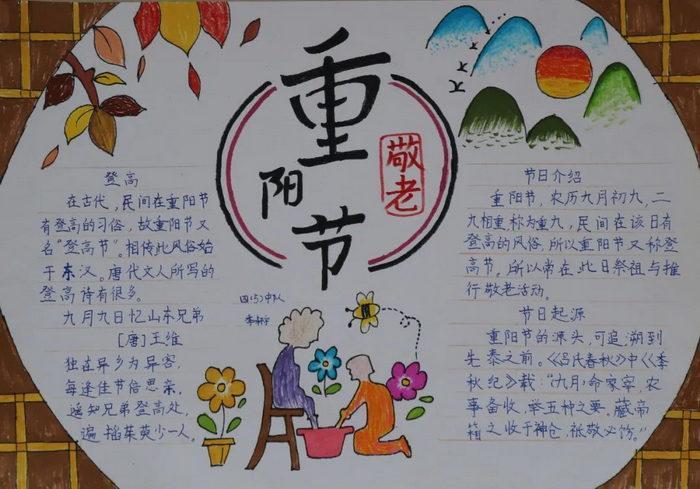 重阳节
敬老
登高
在古代,民间在重阳节
有登高的习俗,故重阳节又
名“登高节”。相传此风俗始
于东汉。唐代文人所写的
登高诗有很多。
九月九日忆山东兄弟
[唐]王维
独在异乡为异客,
每逢佳节倍思亲。
遥知兄弟登高处,
遍插茱萸少一人。
四(5)中队
节日介绍
重阳节,农历九月初九,二
九相重,称为重九,民间在该日有
登高的风俗,所以重阳节又称登
高节。所以常在此日祭祖与推
行敬老活动。
节日起源
重阳节的源头,可追溯到
先秦之前。《吕氏春秋》中《季
秋纪》载:“(九月)命家宰,农
事备收,举五种之要。藏帝
籍之收于神仓,祗敬必饬。”